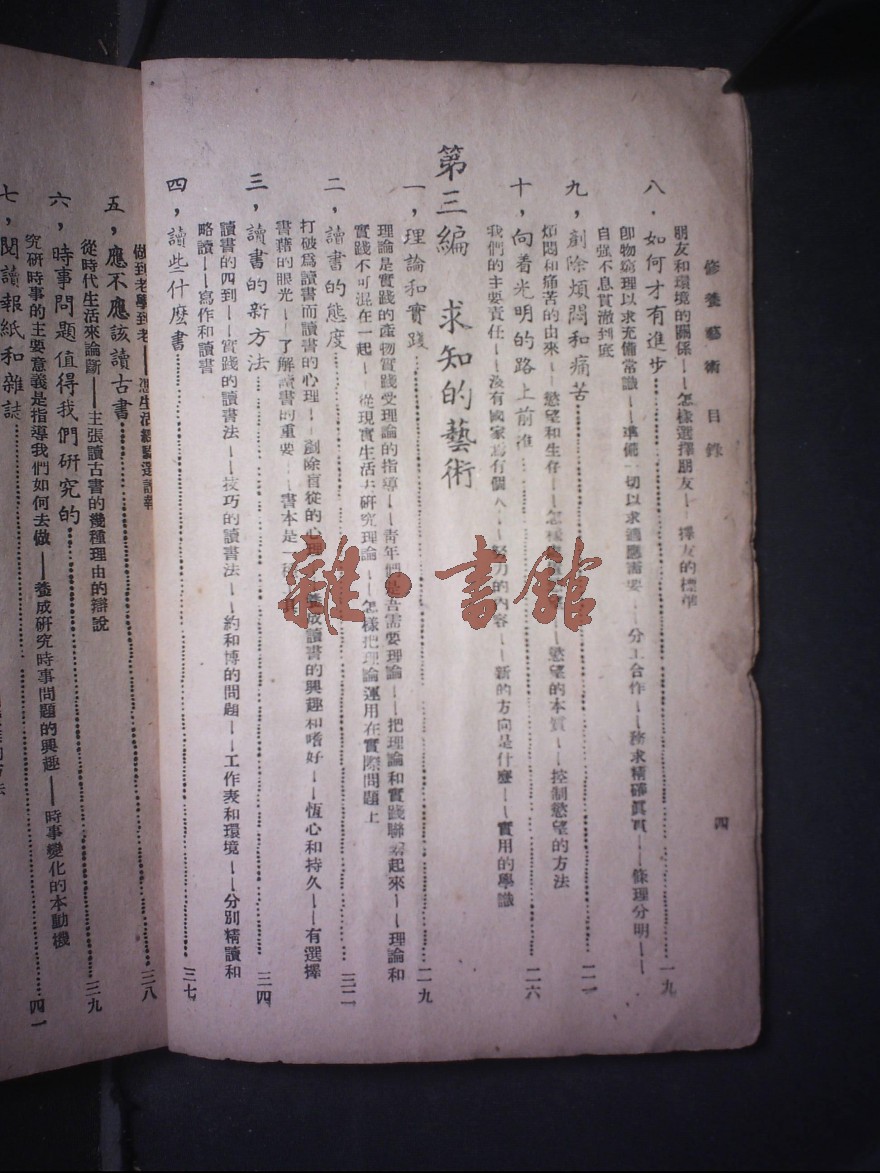 修養藝術 目錄
四
朋友和環境的關係——怎樣選擇朋友——擇友的標準
八．如何才有進步……一九
卽物窮理以求充備常識——準備一切以求適應需要——分工合作——務求精確眞實——條理分明——
自强不息貫澈到底
九，剷除煩悶和痛苦……二一
煩悶和痛苦的由來——慾望和生存——怎樣——慾望的本質——控制慾望的方法
十，向着光明的路上前進……二六
我們的主要責任——沒有國家焉有個人——努力的內容——新的方向是什麽——實用的學識
第三編 求知的藝術
一，理論和實踐……二九
理論是實踐的產物實踐受理論的指導——青年們是否需要理論——把理論和實踐聯繫起來——理論和
實踐不可混在一起——從現實生活去研究理論——怎樣把理論運用在實際問題上
二，讀書的態度……三二
打破爲讀書而讀書的心理——剷除盲從的心理——養成讀書的興趣和嗜好——恆心和持久——有選擇
書藉的眼光——了解讀書的重要——書本是一種
三，讀書的新方法……三四
讀書的四到——實踐的讀書法——技巧的讀書法——約和博的問題——工作表和環境——分別精讀和
略讀——寫作和讀書
四，讀些什麽書……三七
做到老學到老——憑生活經驗選讀書
……三八
五，應不應該讀古書……三九
從時代生活來論斷——主張讀古書的幾種理由的辯說
六，時事問題值得我們研究的……四一
究研時事的主要意義是指導我們如何去做——養成研究時事問題的興趣——時事變化的本動機
七，閱讀報紙和雜誌
雜·書館